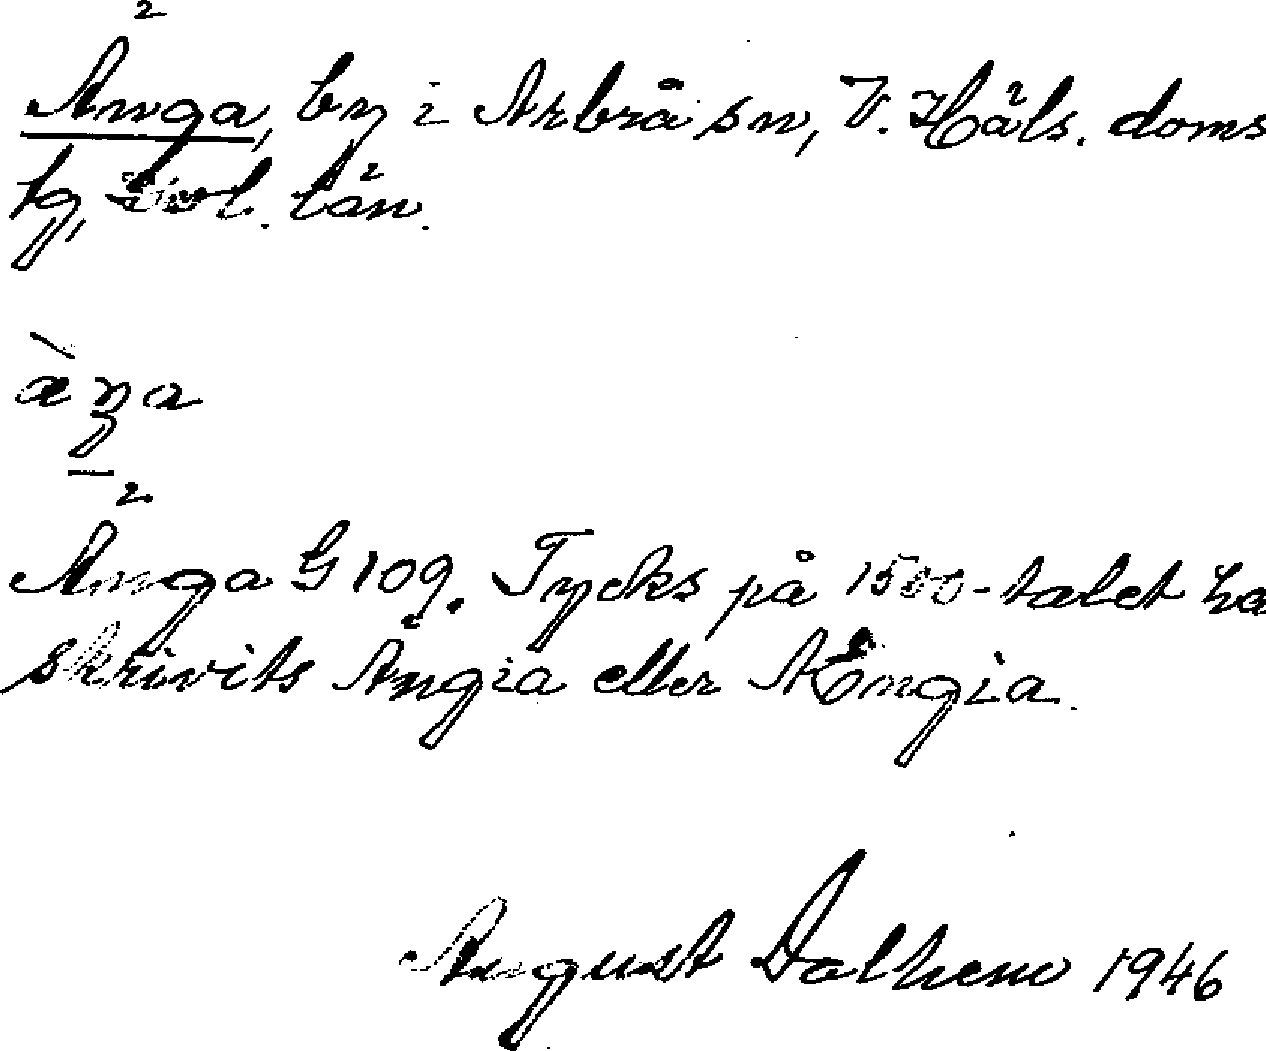 Änga, by i Arbrå sn, V. Häls. doms
bg, Gvl. län.
æ̀ŋa
Änga G 109. Tycks på 1500-talet ha
skrivits Ängia eller AEngia.
August Dalhem 1946